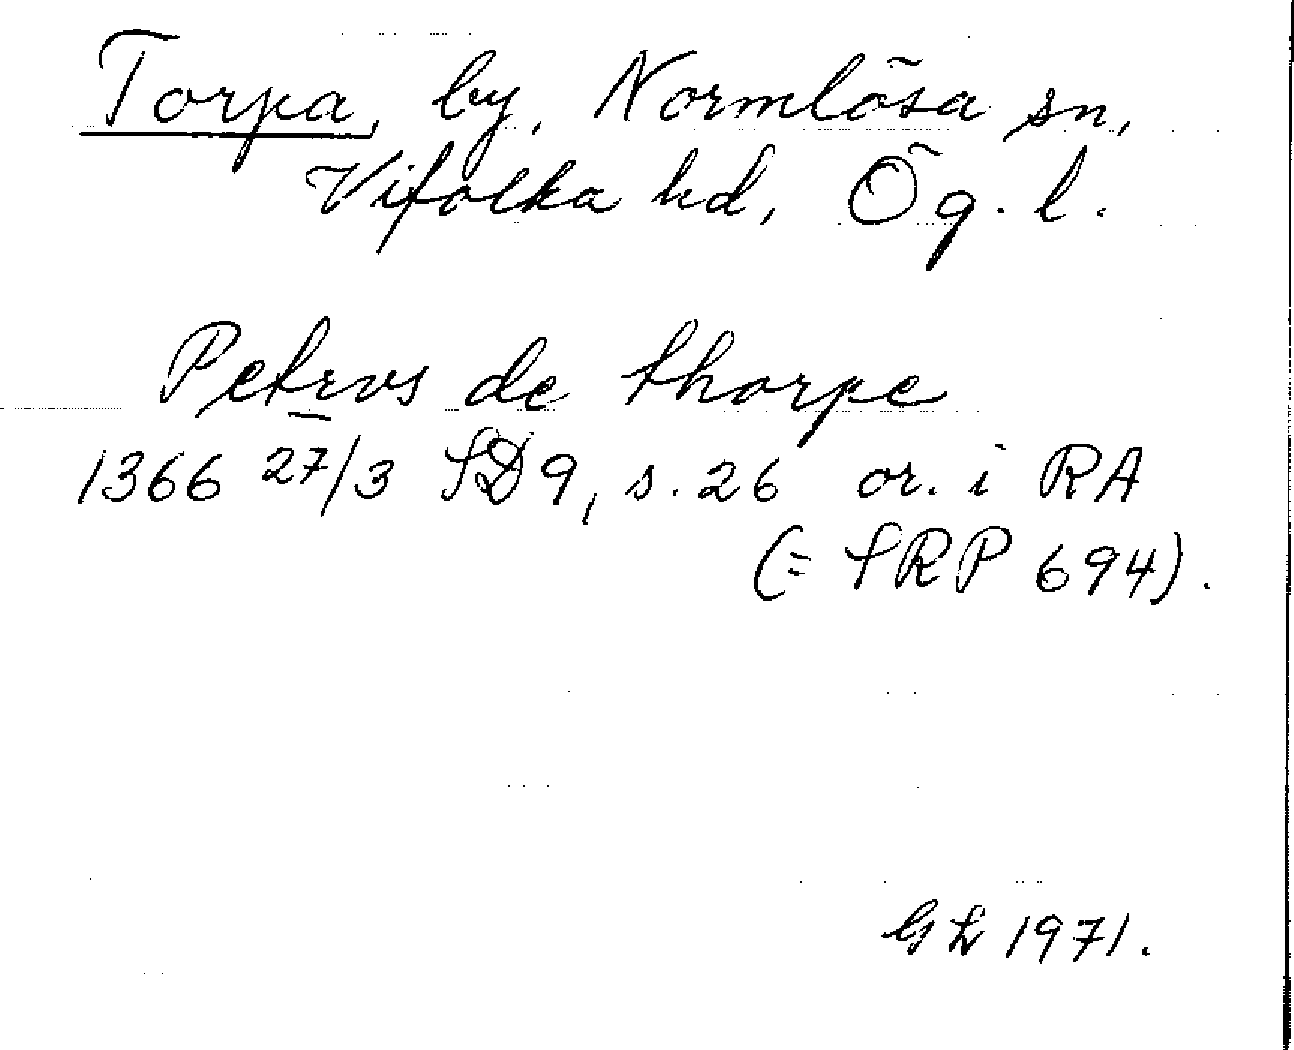 Torpa, by, Normlösa sn,
Vifolka hd, Ög. l.
Petrvs de thorpe
1366 27/3 SD 9, s. 26 or. i RA
(= SRP 694).
GL 1971.